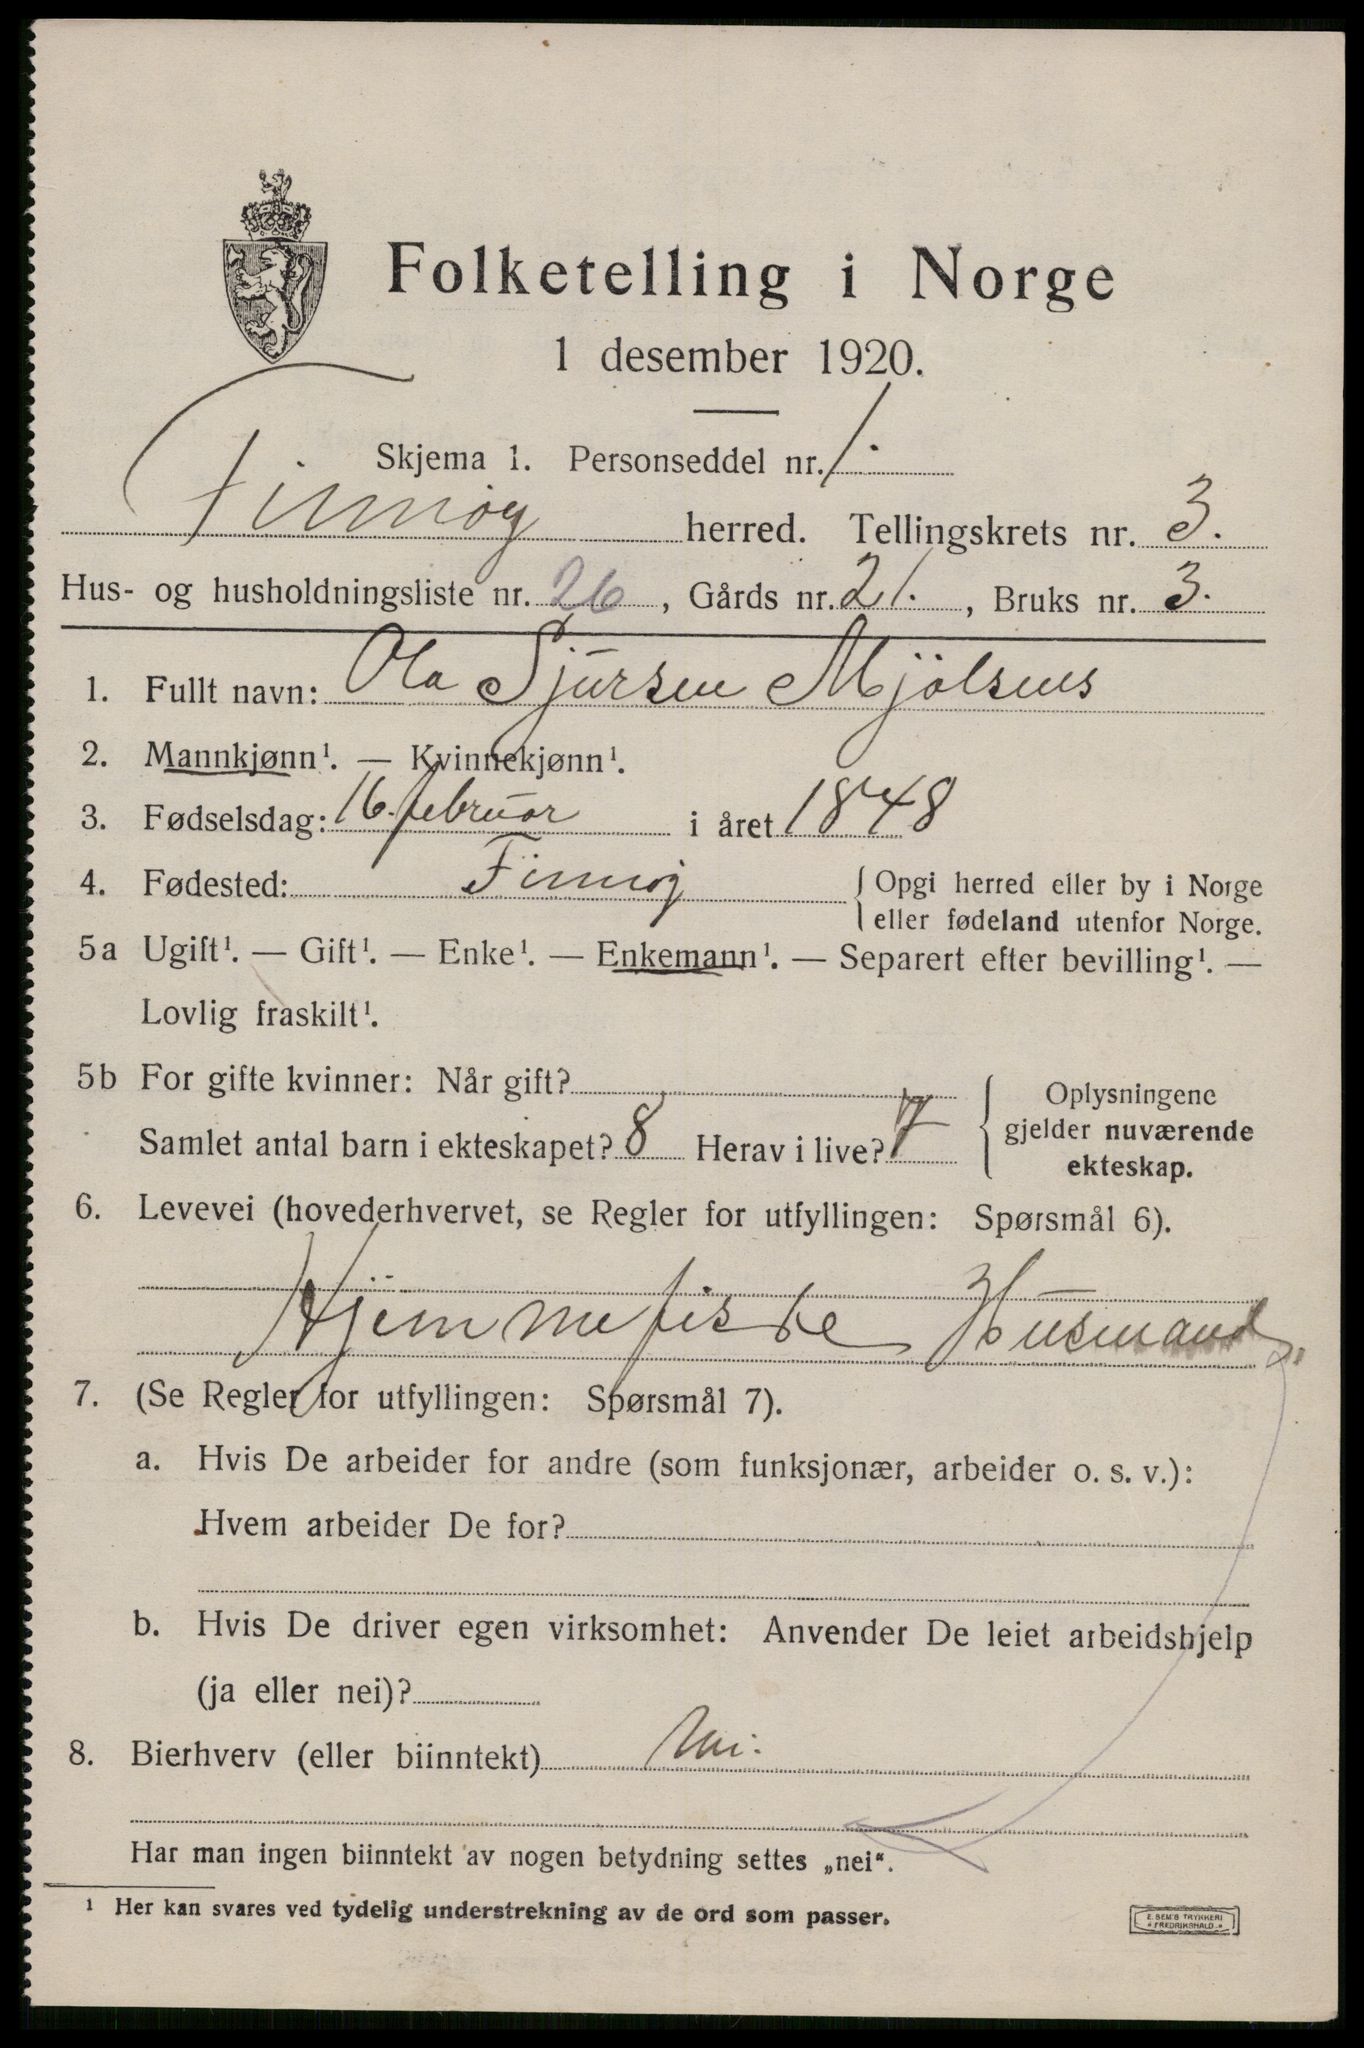 Folketelling i Norge
1 desember 1920.
Skjema 1. Personseddel nr. 1.
Finnøy herred. Tellingskrets nr. 3.
Hus- og husholdningsliste nr. 26, Gårds nr. 21., Bruks nr. 3.
1. Fullt navn: Ola Sjursen Mjølsnes
2. Mannkjønn¹. — Kvinnekjønn¹.
3. Fødselsdag: 16. februar i året 1848
4. Fødested: Finnøy { Opgi herred eller by i Norge
eller fødeland utenfor Norge.
5a Ugift¹. — Gift¹. — Enke¹. — Enkemann¹. — Separert efter bevilling¹. —
Lovlig fraskilt¹.
5b For gifte kvinner: Når gift?
Samlet antal barn i ekteskapet? 8 Herav i live? 7
Oplysningene
gjelder nuværende
ekteskap.
6. Levevei (hovederhvervet, se Regler for utfyllingen: Spørsmål 6).
Hjemmefiske Husmand.
7. (Se Regler for utfyllingen: Spørsmål 7).
a. Hvis De arbeider for andre (som funksjonær, arbeider o. s. v.):
Hvem arbeider De for?
b. Hvis De driver egen virksomhet: Anvender De leiet arbeidshjelp
(ja eller nei)?
8. Bierhverv (eller biinntekt) Nei.
Har man ingen biinntekt av nogen betydning settes „nei“.
¹ Her kan svares ved tydelig understrekning av de ord som passer.
E. SEM'S TRYKKERI
FREDRIKSHALD